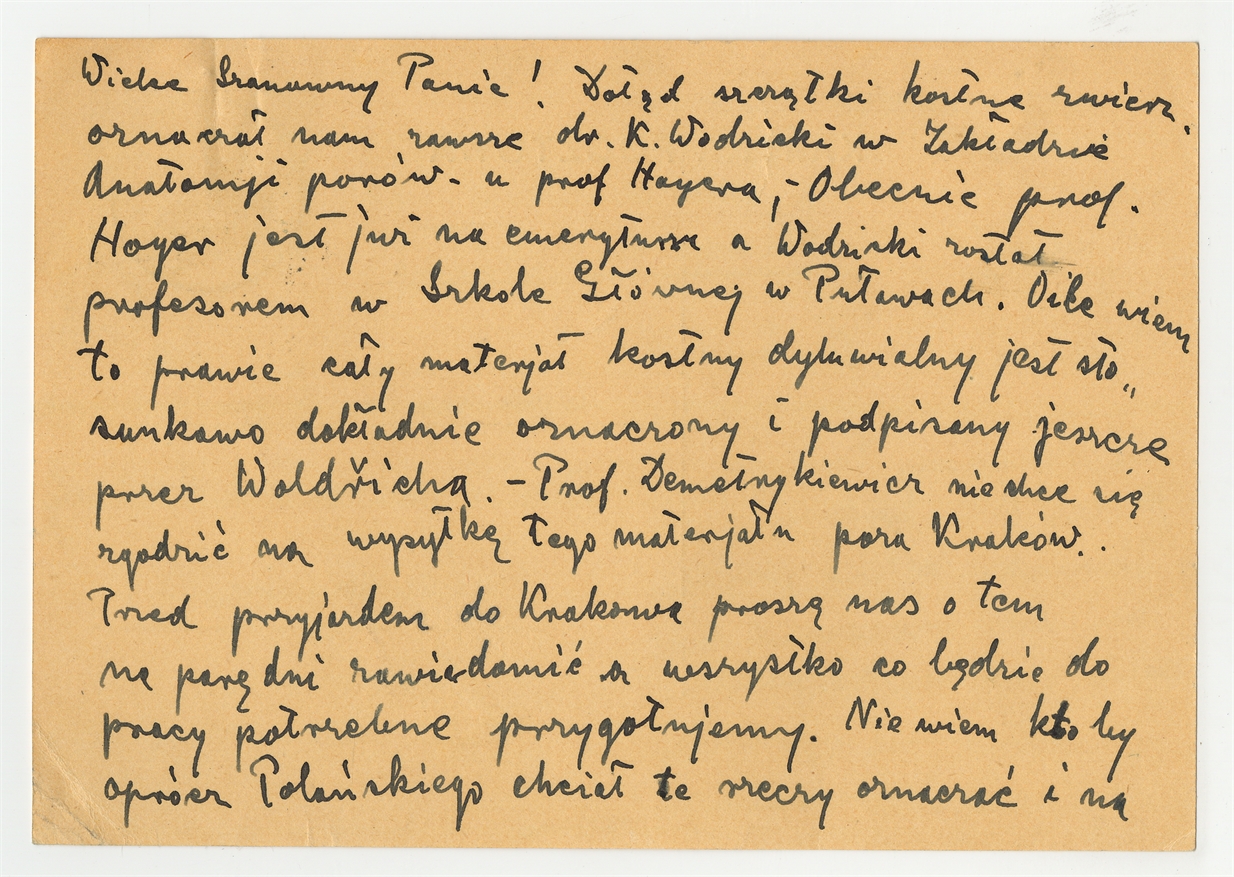 Wielce Szanowny Panie! Dotąd szczątki kostne zwierz.
oznaczał nam zawsze dr. K. Wodzicki w Zakładzie
Anatomji porów. u prof Hoyera, – Obecnie prof.
Hoyer jest już na emeryturze a Wodzicki został
profesorem w Szkole Głównej w Puławach. Oile wiem
to prawie cały materjał kostny dyluwialny jest sto„
sunkowo dokładnie oznaczony i podpisany jeszcze
przez Woldřicha. – Prof. Demetrykiewicz nie chce się
zgodzić na wysyłkę tego materjału poza Kraków..
Przed przyjazdem do Krakowa proszę nas o tem
na parę dni zawiadomić a wszystko co będzie do
pracy potrzebne przygotujemy. Nie wiem kto by
oprócz Polańskiego chciał te rzeczy oznaczać i na